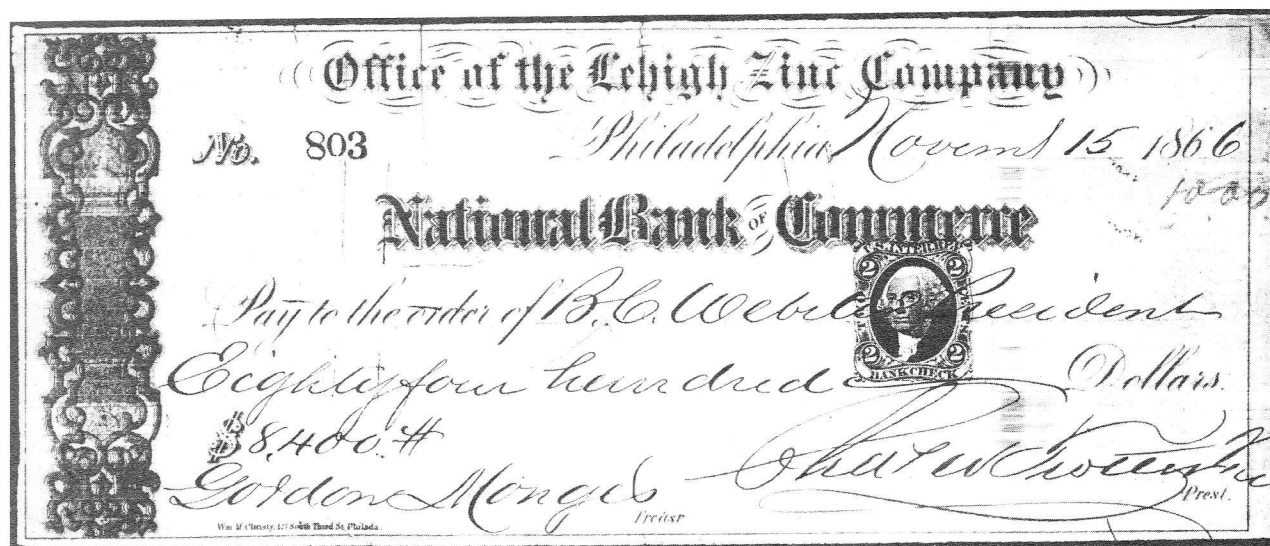 Office of the Lehigh Zinc Company
No. 803 Philadelphia Novemr 15 1866
10.00
National Bank OF Commerce
U.S. INTER. REV.
2 2
Pay to the order of B. C. Webster President
2 2
BANK CHECK
Eighty four hundred Dollars.
$8,400.#
Gordon Monges Treasr
Prest.
Wm. M. Christy, 127 South Third St. Philada.